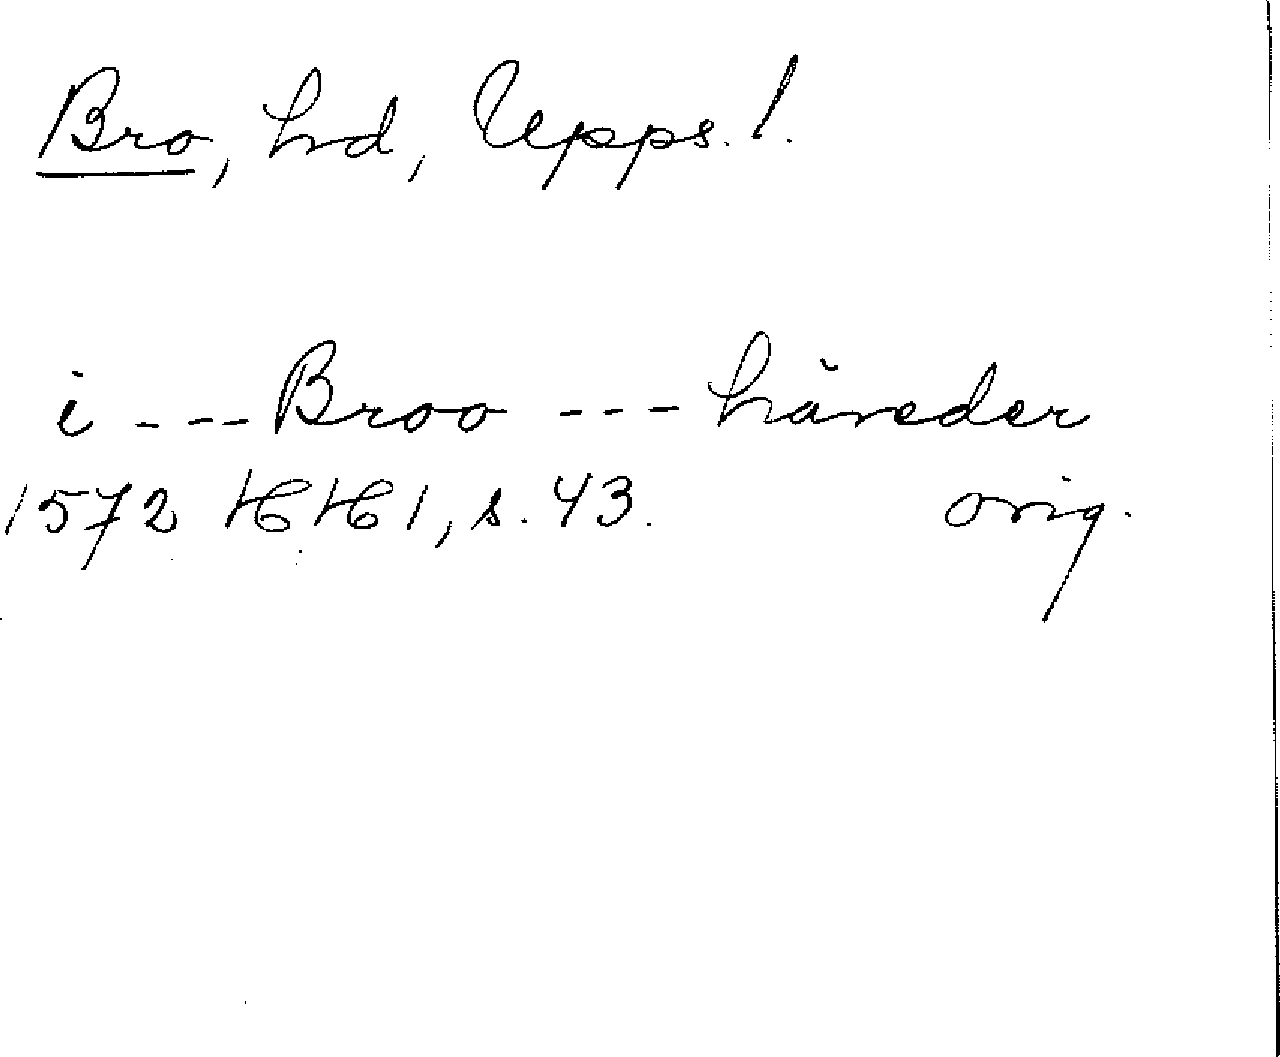 Bro, hd, Upps. l.
i --- Broo --- häreder
1572 HH 1, s. 43. orig.